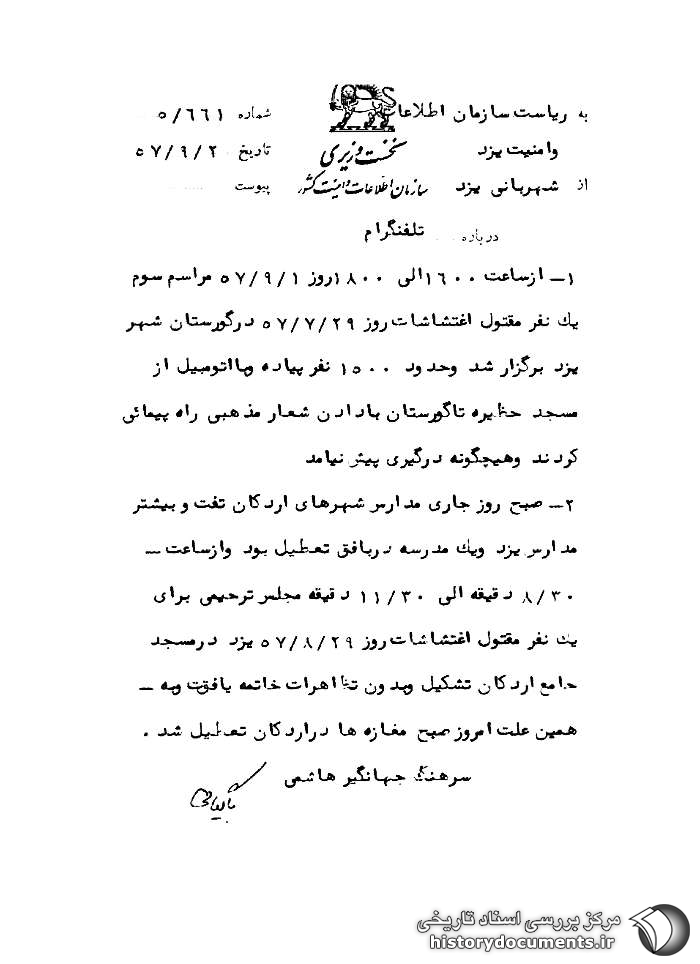 به ریاست سازمان اطلاعا
شماره ۵/۶۶۱
وامنیت یزد
نخست وزیری
تاریخ ۵۷/۹/۲
از شهربانی یزد
سازمان اطلاعات و امنیت کشور
پیوست
درباره تلفنگرام
۱ـ ازساعت ۱۶۰۰الی ۱۸۰۰روز ۵۷/۹/۱ مراسم سوم
یک نفر مقتول اغتشاشات روز ۵۷/۷/۲۹ درگورستان شهر
یزد برگزار شد وحدود ۱۵۰۰ نفر پیاده وبااتومبیل از
مسجد حظیره تاگورستان بادادن شعار مذهبی راه پیمائی
کردند وهیچگونه درگیری پیش نیامد
۲ـ صبح روز جاری مدارس شهرهای اردکان تفت و بیشتر
مدارس یزد ویک مدرسه دربافق تعطیل بود وازساعت ـ
۸/۳۰ دقیقه الی ۱۱/۳۰ دقیقه مجلس ترحیمی برای
یک نفر مقتول اغتشاشات روز ۵۷/۸/۲۹ یزد درمسجد
جامع اردکان تشکیل وبدون تظاهرات خاتمه یافت وبه ـ
همین علت امروز صبح مغازه ها دراردکان تعطیل شد .
سرهنگ جهانگیر هاشمی
مرکز بررسی اسناد تاریخی
historydocuments.ir